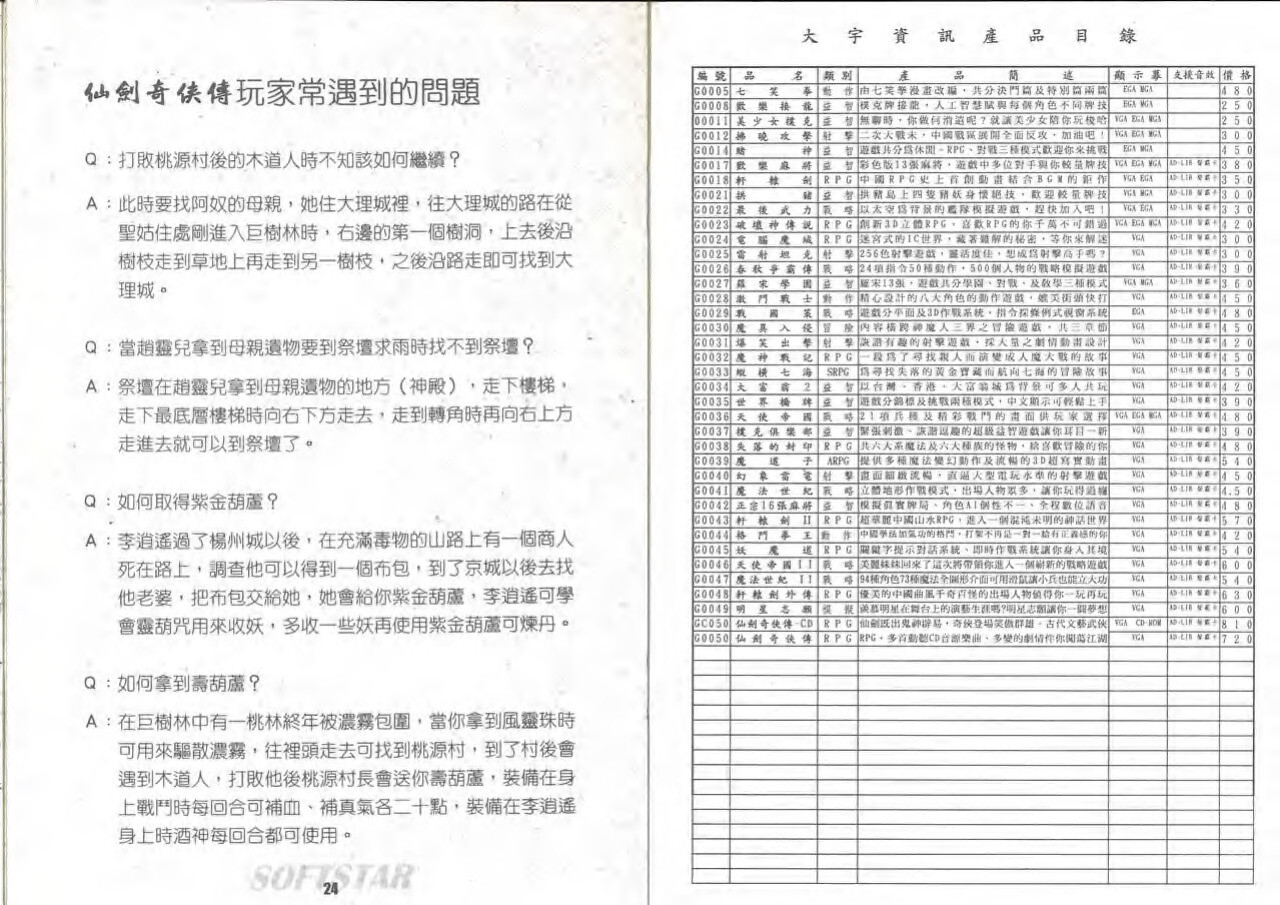 仙劍奇俠傳玩家常遇到的問題
Q：打敗桃源村後的木道人時不知該如何繼續？
A：此時要找阿奴的母親，她住大理城裡，往大理城的路在從
聖姑住處剛進入巨樹林時，右邊的第一個樹洞，上去後沿
樹枝走到草地上再走到另一樹枝，之後沿路走即可找到大
理城。
Q：當趙靈兒拿到母親遺物要到祭壇求雨時找不到祭壇？
A：祭壇在趙靈兒拿到母親遺物的地方（神殿），走下樓梯，
走下最底層樓梯時向右下方走去，走到轉角時再向右上方
走進去就可以到祭壇了。
Q：如何取得紫金葫蘆？
A：李逍遙過了楊州城以後，在充滿毒物的山路上有一個商人
死在路上，調查他可以得到一個布包，到了京城以後去找
他老婆，把布包交給她，她會給你紫金葫蘆，李逍遙可學
會靈葫咒用來收妖，多收一些妖再使用紫金葫蘆可煉丹。
Q：如何拿到壽葫蘆？
A：在巨樹林中有一桃林終年被濃霧包圍，當你拿到風靈珠時
可用來驅散濃霧，往裡頭走去可找到桃源村，到了村後會
遇到木道人，打敗他後桃源村長會送你壽葫蘆，裝備在身
上戰鬥時每回合可補血、補真氣各二十點，裝備在李逍遙
身上時酒神每回合都可使用。
SOFTSTAR
24
大宇資訊產品目錄
編號 品名 類別 產品簡述 顯示幕 支援音效 價格
G0005 七笑拳 動作 由七笑拳漫畫改編，共分決鬥篇及特別篇兩篇 EGA MGA 480
G0008 歡樂接龍 益智 樸克牌接龍，人工智慧賦與每個角色不同牌技 EGA MGA 250
00011 美少女樸克 益智 無聊時，你做何消遣呢？就讓美少女陪你玩梭哈 VGA EGA MGA 250
G0012 拂曉攻擊 射擊 二次大戰末，中國戰區展開全面反攻，加油吧！ VGA EGA MGA 300
G0014 賭神 益智 遊戲共分為休閒、RPG、對戰三種模式歡迎你來挑戰 EGA MGA 450
G0017 歡樂麻將 益智 彩色版13張麻將，遊戲中多位對手與你較量牌技 VGA EGA MGA AD-LIB 聲霸卡 380
G0018 軒轅劍 RPG 中國RPG史上首創動畫結合BGM的鉅作 VGA EGA AD-LIB 聲霸卡 350
G0021 拱豬 益智 拱豬島上四隻豬妖身懷絕技，歡迎較量牌技 VGA MGA AD-LIB 聲霸卡 300
G0022 最後武力 戰略 以太空為背景的艦隊模擬遊戲，趕快加入吧！ VGA EGA AD-LIB 聲霸卡 330
G0023 破壞神傳說 RPG 創新3D立體RPG，喜歡RPG的你千萬不可錯過 VGA EGA MGA AD-LIB 聲霸卡 420
G0024 電腦魔域 RPG 迷宮式的IC世界，藏著難解的秘密，等你來解迷 VGA AD-LIB 聲霸卡 300
G0025 雷射坦克 射擊 256色射擊遊戲，靈活度佳，想成為射擊高手嗎？ VGA AD-LIB 聲霸卡 300
G0026 春秋爭霸傳 戰略 24項指令50種動作，500個人物的戰略模擬遊戲 VGA AD-LIB 聲霸卡 390
G0027 羅宋學園 益智 羅宋13張，遊戲共分學園、對戰、及教學三種模式 VGA MGA AD-LIB 聲霸卡 360
G0028 激鬥戰士 動作 精心設計的八大角色的動作遊戲，媲美街頭快打 VGA AD-LIB 聲霸卡 450
G0029 戰國策 戰略 遊戲分平面及3D作戰系統，指令採條例式視窗系統 EGA AD-LIB 聲霸卡 480
G0030 魔異入侵 冒險 內容橫跨神魔人三界之冒險遊戲，共三章節 VGA AD-LIB 聲霸卡 450
G0031 爆笑出擊 射擊 詼諧有趣的射擊遊戲，採大量之劇情動畫設計 VGA AD-LIB 聲霸卡 420
G0032 魔神戰記 RPG 一段為了尋找親人而演變成人魔大戰的故事 VGA AD-LIB 聲霸卡 450
G0033 縱橫七海 SRPG 為尋找失落的黃金寶藏而航向七海的冒險故事 VGA AD-LIB 聲霸卡 450
G0034 大富翁2 益智 以台灣、香港、大富翁城為背景可多人共玩 VGA AD-LIB 聲霸卡 420
G0035 世界橋牌 益智 遊戲分錦標及挑戰兩種模式，中文顯示可輕鬆上手 VGA AD-LIB 聲霸卡 390
G0036 天使帝國 戰略 21項兵種及精彩戰鬥的畫面供玩家選擇 VGA EGA MGA AD-LIB 聲霸卡 480
G0037 樸克俱樂部 益智 緊張刺激、詼諧逗趣的超級益智遊戲讓你耳目一新 VGA AD-LIB 聲霸卡 390
G0038 失落的封印 RPG 共六大系魔法及六大種族的怪物，給喜歡冒險的你 VGA AD-LIB 聲霸卡 480
G0039 魔道子 ARPG 提供多種魔法變幻動作及流暢的3D超寫實動畫 VGA AD-LIB 聲霸卡 540
G0040 幻象雷電 射擊 畫面細緻流暢，直逼大型電玩水準的射擊遊戲 VGA AD-LIB 聲霸卡 450
G0041 魔法世紀 戰略 立體地形作戰模式，出場人物眾多，讓你玩得過癮 VGA AD-LIB 聲霸卡 4.50
G0042 正宗16張麻將 益智 模擬真實牌局、角色AI個性不一、全程數位語音 VGA AD-LIB 聲霸卡 480
G0043 軒轅劍II RPG 超華麗中國山水RPG，進入一個混沌未明的神話世界 VGA AD-LIB 聲霸卡 570
G0044 格鬥拳王 動作 中國學法加氣功的格鬥，打架不再是一對一給有正義感的你 VGA AD-LIB 聲霸卡 420
G0045 妖魔道 RPG 關鍵字提示對話系統、即時作戰系統讓你身入其境 VGA AD-LIB 聲霸卡 540
G0046 天使帝國II 戰略 美麗妹妹回來了這次將帶領你進入一個嶄新的戰略遊戲 VGA AD-LIB 聲霸卡 600
G0047 魔法世紀II 戰略 94種角色73種魔法全圖形介面可用滑鼠讓小兵也能立大功 VGA AD-LIB 聲霸卡 540
G0048 軒轅劍外傳 RPG 優美的中國曲風千奇百怪的出場人物值得你一玩再玩 VGA AD-LIB 聲霸卡 630
G0049 明星志願 模擬 羨慕明星在舞台上的演藝生涯嗎?明星志願讓你一圓夢想 VGA AD-LIB 聲霸卡 600
GC050 仙劍奇俠傳-CD RPG 仙劍既出鬼神辟易，奇俠登場笑傲群雄。古代文藝武俠 VGA CD-ROM AD-LIB 聲霸卡 810
G0050 仙劍奇俠傳 RPG RPG，多首動聽CD音源樂曲、多變的劇情伴你闖蕩江湖 VGA AD-LIB 聲霸卡 720